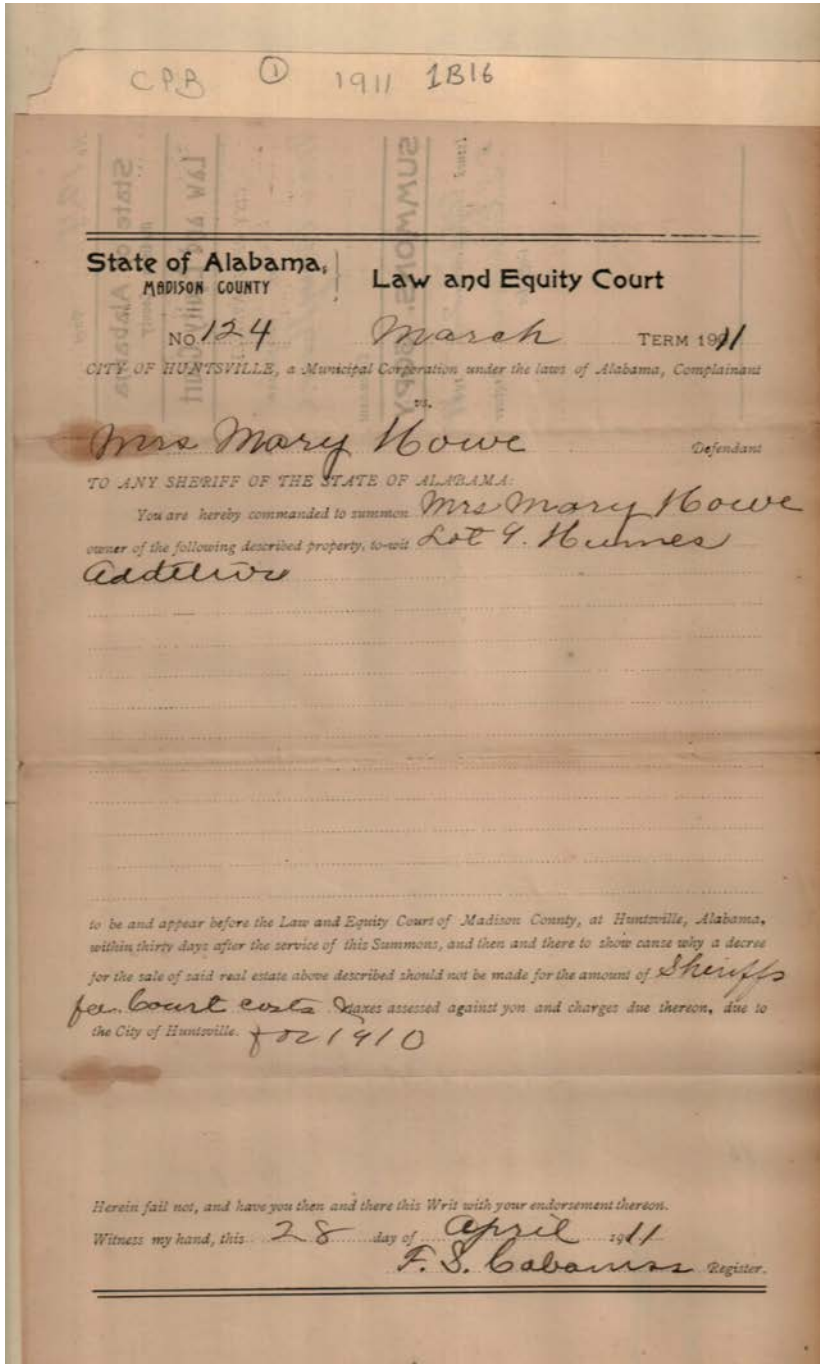 CPB ① 1911 1B16
State of Alabama,
MADISON COUNTY
Law and Equity Court
No. 124 March TERM 1911
CITY OF HUNTSVILLE, a Municipal Corporation under the laws of Alabama, Complainant
vs.
Mrs Mary Howe Defendant
TO ANY SHERIFF OF THE STATE OF ALABAMA:
You are hereby commanded to summon Mrs Mary Howe
owner of the following described property, to-wit Lot 9. Humes
Addition
to be and appear before the Law and Equity Court of Madison County, at Huntsville, Alabama,
within thirty days after the service of this Summons, and then and there to show cause why a decree
for the sale of said real estate above described should not be made for the amount of Sheriffs
fee. Court costs & taxes assessed against you and charges due thereon, due to
the City of Huntsville. for 1910
Herein fail not, and have you then and there this Writ with your endorsement thereon.
Witness my hand, this 28 day of April 1911
F. S. Cabaniss Register.